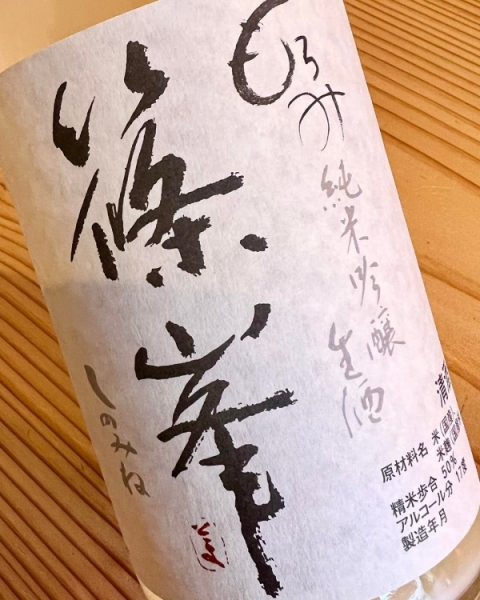 もろみ
純米吟醸
生酒
篠峯
しのみね
清酒
原材料名 米(国産)、
米麹(国産
精米歩合 50%
アルコール分 17度
製造年月